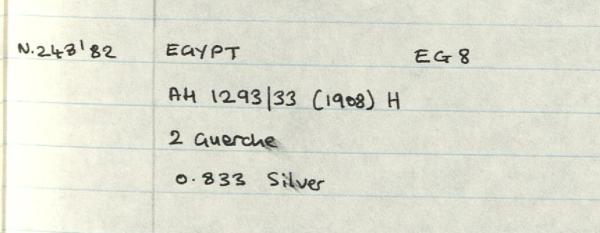 N.243'82 EGYPT EG 8
AH 1293/33 (1908) H
2 Guerche
0.833 Silver